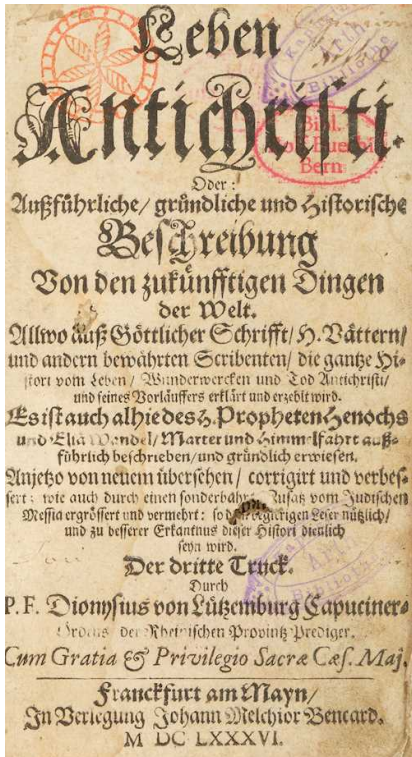 Leben
Antichristi.
Oder:
Außführliche/ gründliche und Historische
Beschreibung
Von den zukünfftigen Dingen
der Welt.
Allwo auß Göttlicher Schrifft/ H. Vättern/
und andern bewährten Scribenten/ die gantze Hi-
stori vom Leben/ Wunderwercken und Tod Antichristi/
und seines Vorläuffers erklärt und erzehlt wird.
Es ist auch alhie des H. Propheten Henochs
und Eliä Wandel/ Marter und Himmelfahrt auß-
führlich beschrieben/ und gründlich erwiesen.
Anjetzo von neuem übersehen/ corrigirt und verbes-
sert; wie auch durch einen sonderbahren Zusatz vom Jüdischen
Messia ergrössert und vermehrt: so dem begierigen Leser nützlich/
und zu besserer Erkantnus dieser Histori dienlich
seyn wird.
Der dritte Truck.
Durch
P. F. Dionysius von Lützemburg Capuciner-
Ordens der Rheinischen Provintz Prediger.
Cum Gratia & Privilegio Sacræ Cæs. Maj.
Franckfurt am Mayn/
In Verlegung Johann Melchior Bencard.
M DC LXXXVI.
Bibl.
Bern
Arth